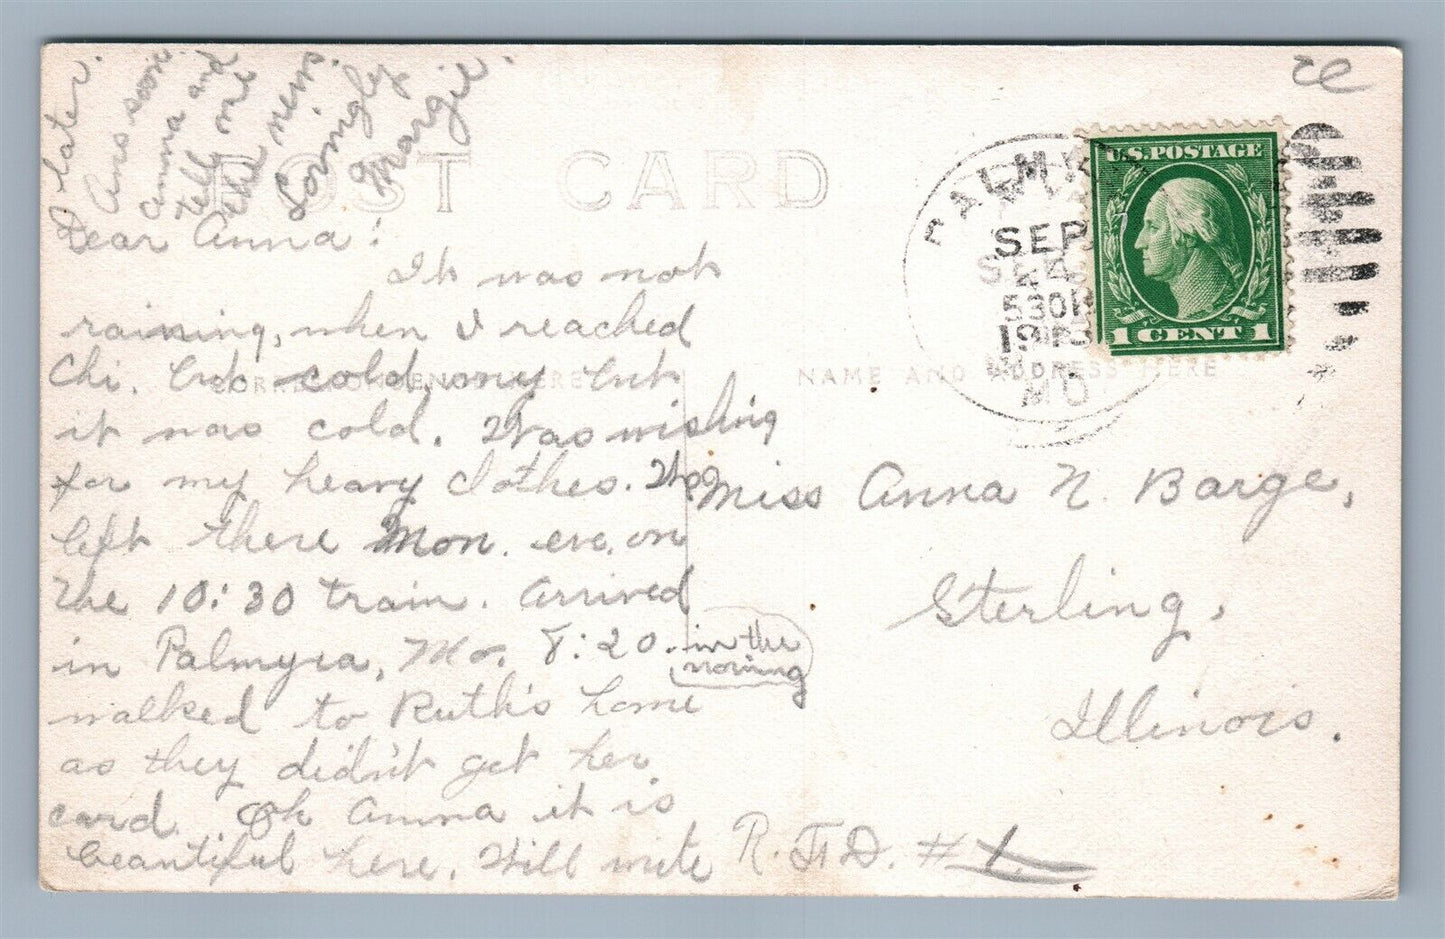 POST CARD
CORRESPONDENCE HERE
NAME AND ADDRESS HERE
Dear Anna!
It was not
raining, when I reached
Chi. but cold, my but
it was cold. Was wishing
for my heavy clothes. We
left there Mon. eve. on
the 10:30 train. Arrived
in Palmyra, Mo. 8:20. in the
morning
walked to Ruth's home
as they didn't get her
card. Oh Anna it is
beautiful here. Will write
later.
Ans soon
Anna and
tell me
the news.
Lovingly
Margie.
PALMYRA
SEP
4
530
191
MO
U.S. POSTAGE
1 CENT 1
Miss Anna N. Barge,
Sterling,
Illinois.
R.F.D. #1.